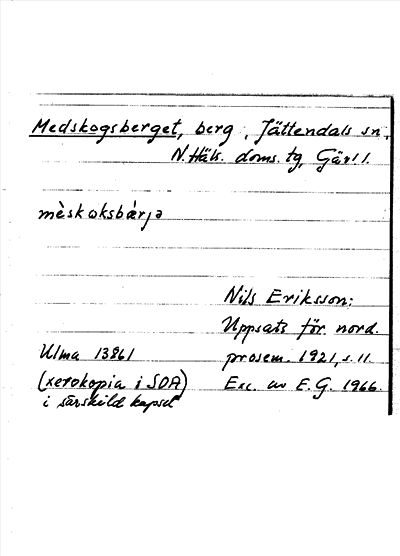 Medskogsberget, berg, Jättendals sn,
N. Häls. doms. tg, Gävl l.
mèskoksbærjə
Nils Eriksson:
Uppsats för nord.
Ulma 13861 prosem. 1921, s. 11.
(xerokopia i SOA) Exc. av E.G. 1966.
i särskild kapsel